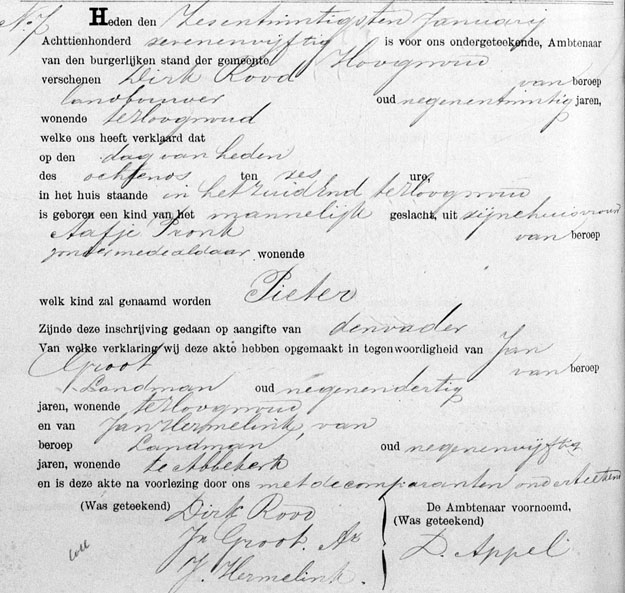 N. 7 Heden den Zesentwintigsten Januarij
Achttienhonderd zevenenvijftig is voor ons ondergeteekende, Ambtenaar
van den burgerlijken stand der gemeente Hoogwoud
verschenen Dirk Rood van beroep
landbouwer oud negenentwintig jaren,
wonende te Hoogwoud
welke ons heeft verklaard dat
op den dag van heden
des ochtends ten zes ure,
in het huis staande in het zuidend te Hoogwoud
is geboren een kind van het mannelijk geslacht, uit zijne huisvrouw
Aafje Pronk van beroep
zonder mede aldaar wonende
welk kind zal genaamd worden Pieter
Zijnde deze inschrijving gedaan op aangifte van den vader
Van welke verklaring wij deze akte hebben opgemaakt in tegenwoordigheid van Jan
Groot van beroep
Landman oud negenendertig
jaren, wonende te Hoogwoud
en van Jan Hermelink, van
beroep Landman oud negenenvijftig
jaren, wonende te Abbekerk
en is deze akte na voorlezing door ons met de comparanten onderteekend
(Was geteekend) Dirk Rood
Jn Groot. Az
J. Hermelink.
De Ambtenaar voornoemd,
(Was geteekend)
D. Appel